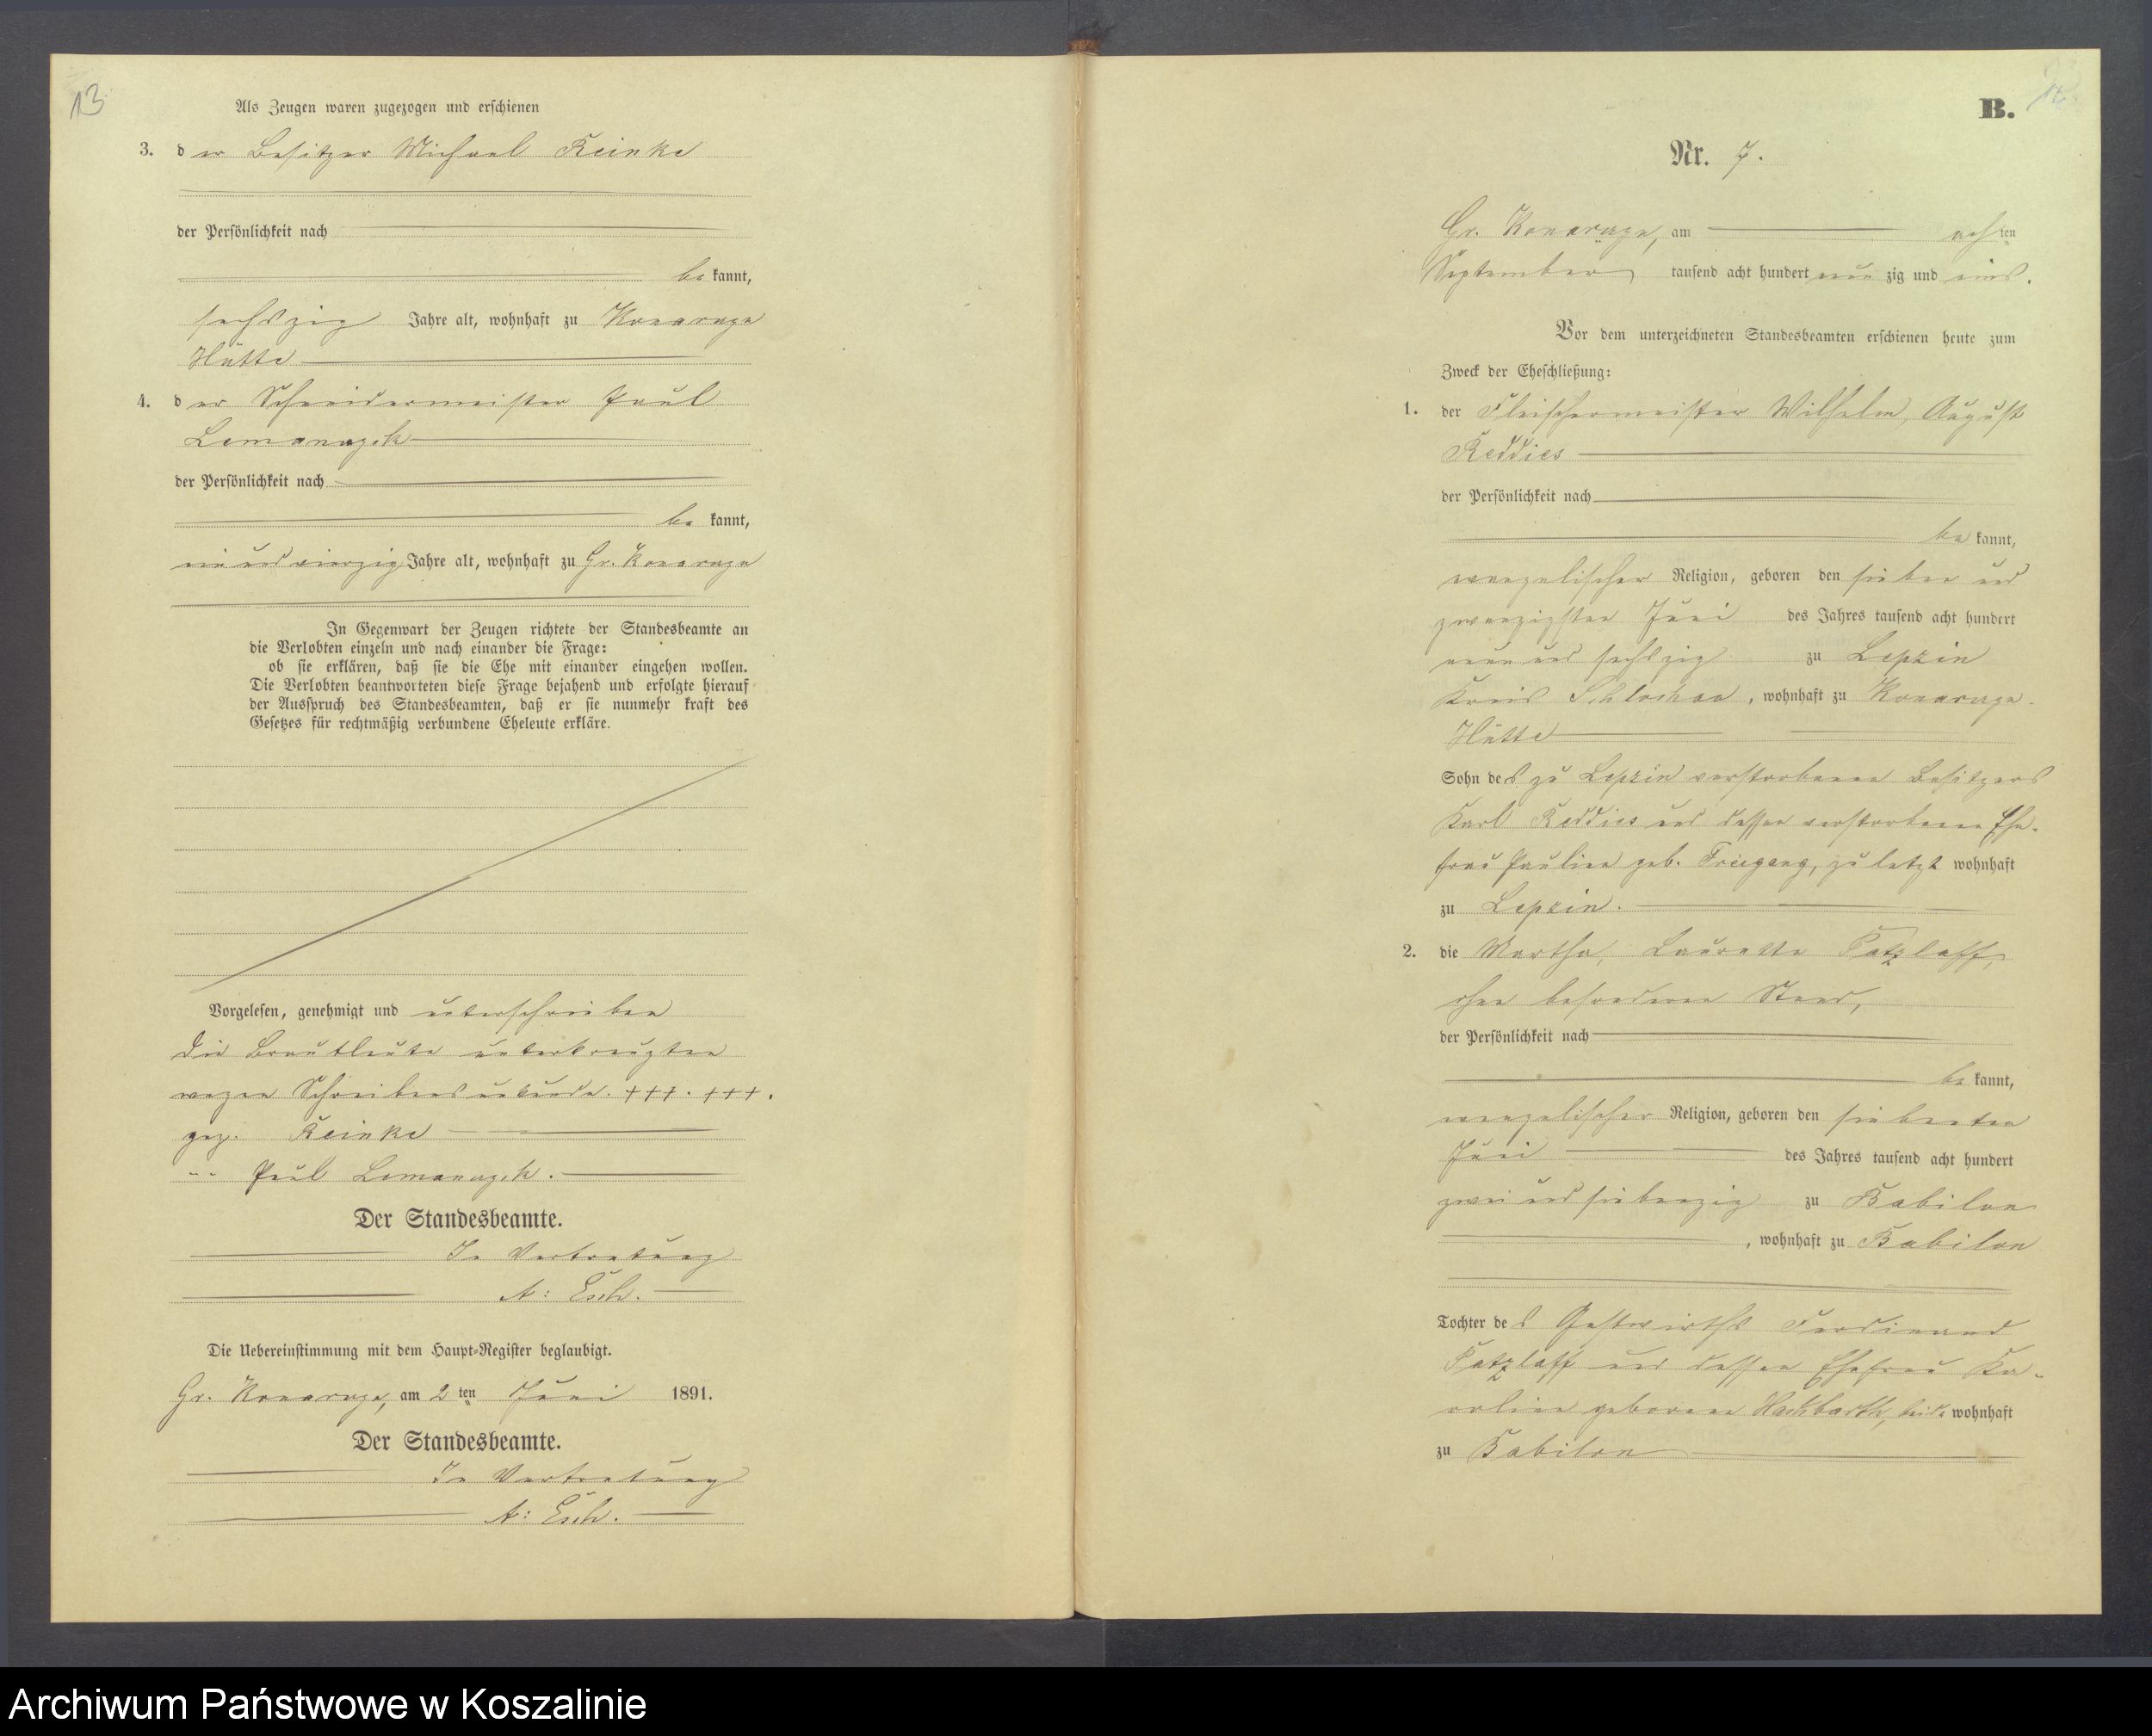 13
Als Zeugen waren zugezogen und erschienen
3. der Besitzer Michael Reinke
der Persönlichkeit nach
bekannt,
sechszig Jahre alt, wohnhaft zu Konarzyn
Hütte
4. der Schneidermeister Paul
Lemanczyk
der Persönlichkeit nach
bekannt,
ein und vierzig Jahre alt, wohnhaft zu Gr. Konarzyn
In Gegenwart der Zeugen richtete der Standesbeamte an
die Verlobten einzeln und nach einander die Frage:
ob sie erklären, daß sie die Ehe mit einander eingehen wollen.
Die Verlobten beantworteten diese Frage bejahend und erfolgte hierauf
der Ausspruch des Standesbeamten, daß er sie nunmehr kraft des
Gesetzes für rechtmäßig verbundene Eheleute erkläre.
Vorgelesen, genehmigt und unterschrieben
Die Brautleute unterkreuzten
wegen Schreibensunkunde. +++. +++.
gez. Reinke
-- Paul Lemanczyk.
Der Standesbeamte.
In Vertretung
A: Esch.
Die Uebereinstimmung mit dem Haupt-Register beglaubigt.
Gr. Konarzyn, am 2ten Juni 1891.
Der Standesbeamte.
In Vertretung
A: Esch.
B.
Nr. 7.
Gr. Konarzyn, am achten
September tausend acht hundert neunzig und eins.
Vor dem unterzeichneten Standesbeamten erschienen heute zum
Zweck der Eheschließung:
1. der Fleischermeister Wilhelm, August
Reddies
der Persönlichkeit nach
bekannt,
evangelischer Religion, geboren den sieben und
zwanzigsten Juni des Jahres tausend acht hundert
neun und sechszig zu Lepzin
Kreis Schlochau, wohnhaft zu Konarzyn-
Hütte
Sohn des zu Lepzin verstorbenen Besitzers
Karl Reddies und dessen verstorbenen Ehe-
frau Pauline geb. Freigang, zu letzt wohnhaft
zu Lepzin.
2. die Martha, Laurette Patzlaff,
ohne besonderen Stand,
der Persönlichkeit nach
bekannt,
evangelischer Religion, geboren den siebenten
Juni des Jahres tausend acht hundert
zwei und siebenzig zu Babilon
, wohnhaft zu Babilon
Tochter des Gastwirths Ferdinand
Patzlaff und dessen Ehefrau Ka-
roline geborene Hackbarth, beide wohnhaft
zu Babilon
Archiwum Państwowe w Koszalinie